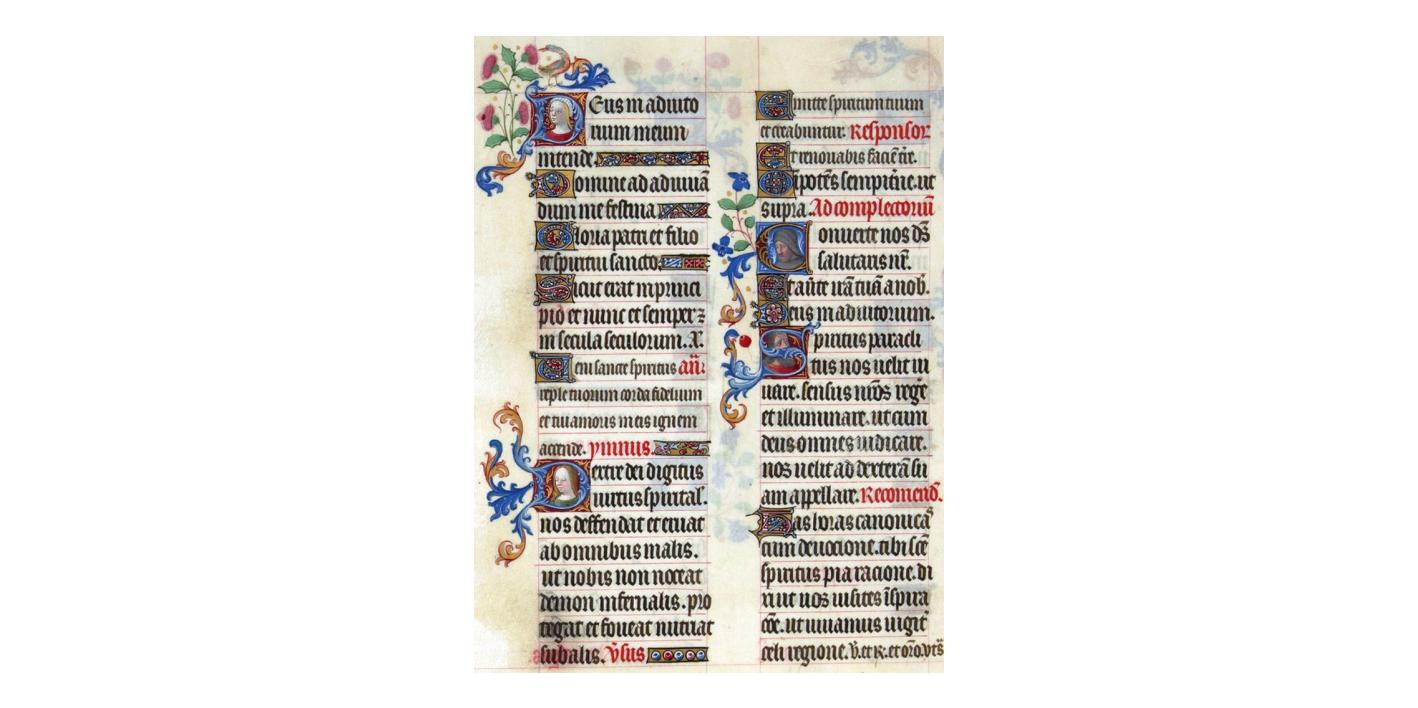 Deus in adiuto
rium meum
intende.
Domine ad adiuuā
dum me festina
Gloria patri et filio
et spiritui sancto.
Sicut erat in princi
pio et nunc et semper ⁊
in secula seculorum. A̅.
Veni sancte spiritus añ.
reple tuorum corda fidelium
et tui amoris in eis ignem
accende. ymnus.
Dextre dei digitus
uirtus spirital'.
nos deffendat et eruat
ab omnibus malis.
ut nobis non noceat
demon infernalis. pro
tegat et foueat nutriat
sub alis. v̄sus
Emitte spiritum tuum
et creabuntur. Responsor
Et renouabis faciē t̄re.
Oīpotēs sempit̄ne. ut
supra. Ad complectoriū
Conuerte nos ds̄
salutaris nr̄.
Et au̅te irā tuā a nob'.
Deus in adiutorium.
Spiritus paracli
tus nos uelit iu
uare. sensus nr̄os rege
et illuminare. ut cum
deus omnes iudicare.
nos uelit ad dexterā su
am appellare. Recomend'.
Has horas canonicas
cum deuocione. tibi sc̄e
spiritus pia racione. di
xi ut nos uisites īspira
cōe. ut uiuamus iugit̄
celi regione. v̄. et ꝶ. et oro̅. vts̄